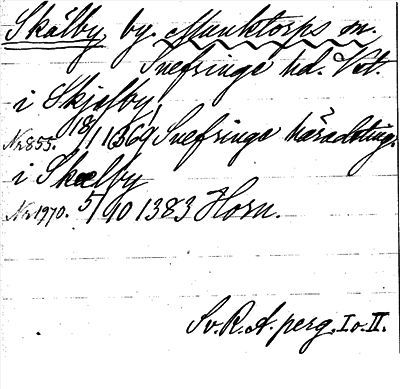 Skälby, by. Munktorps sn.
Snefringe hd. Vstl.
i Skjælby
Nr 855. 18/1 1369 Snefringe häradsting.
i Skælby
Nr 1970. 5/10 1383 Horn.
Sv. R. A. perg. I o. II.